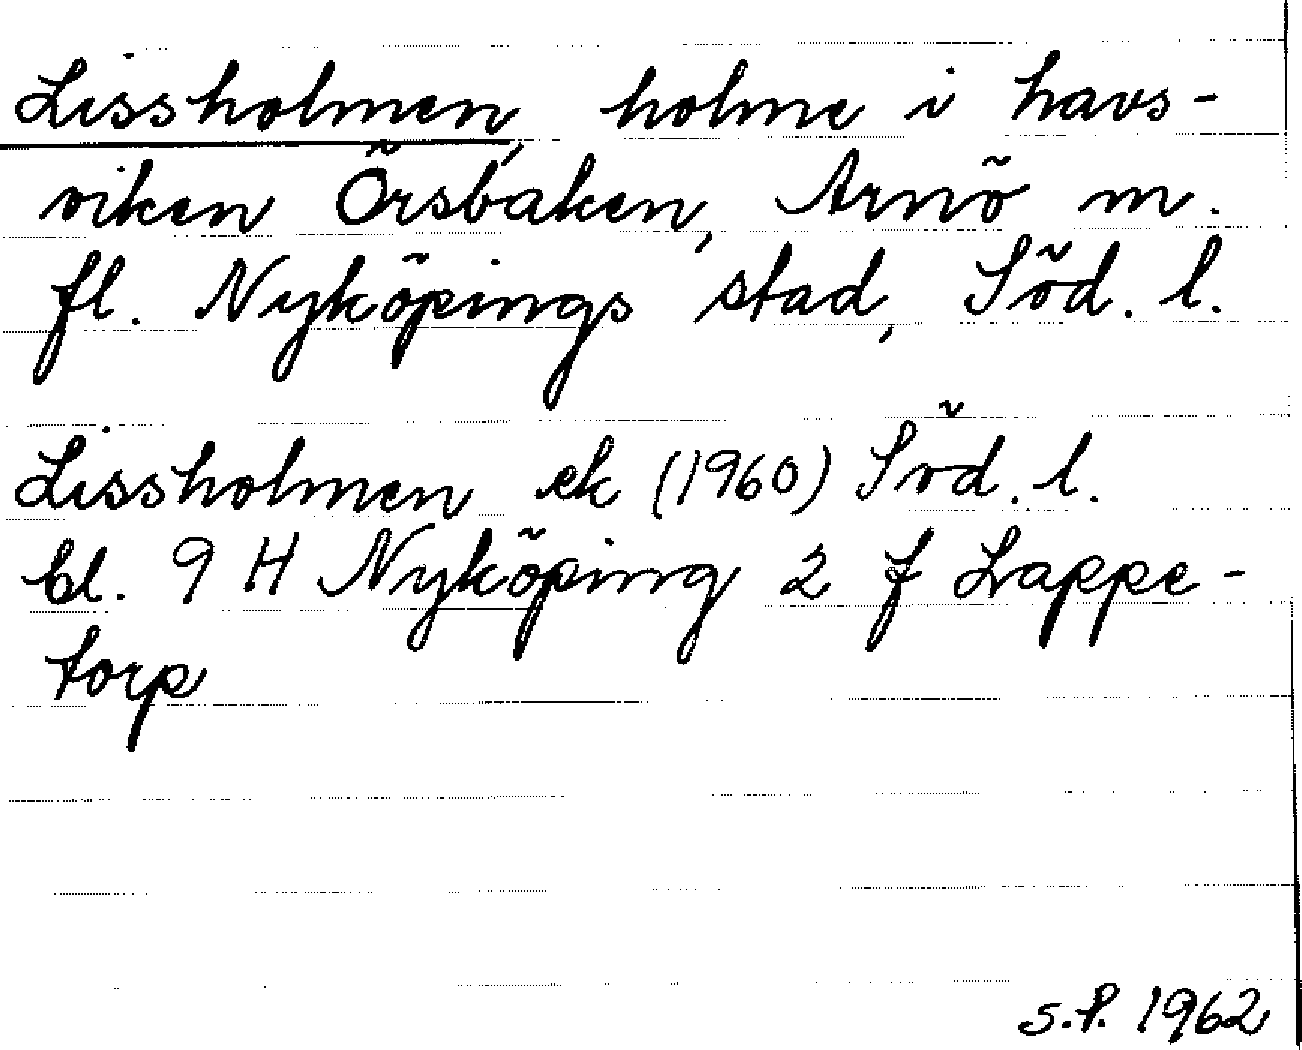 Lissholmen, holme i havs-
viken Örsbaken, Arnö m.
fl. Nyköpings stad, Söd. l.
Lissholmen ek (1960) Söd. l.
bl. 9 H Nyköping 2 f Lappe-
torp
S.P. 1962